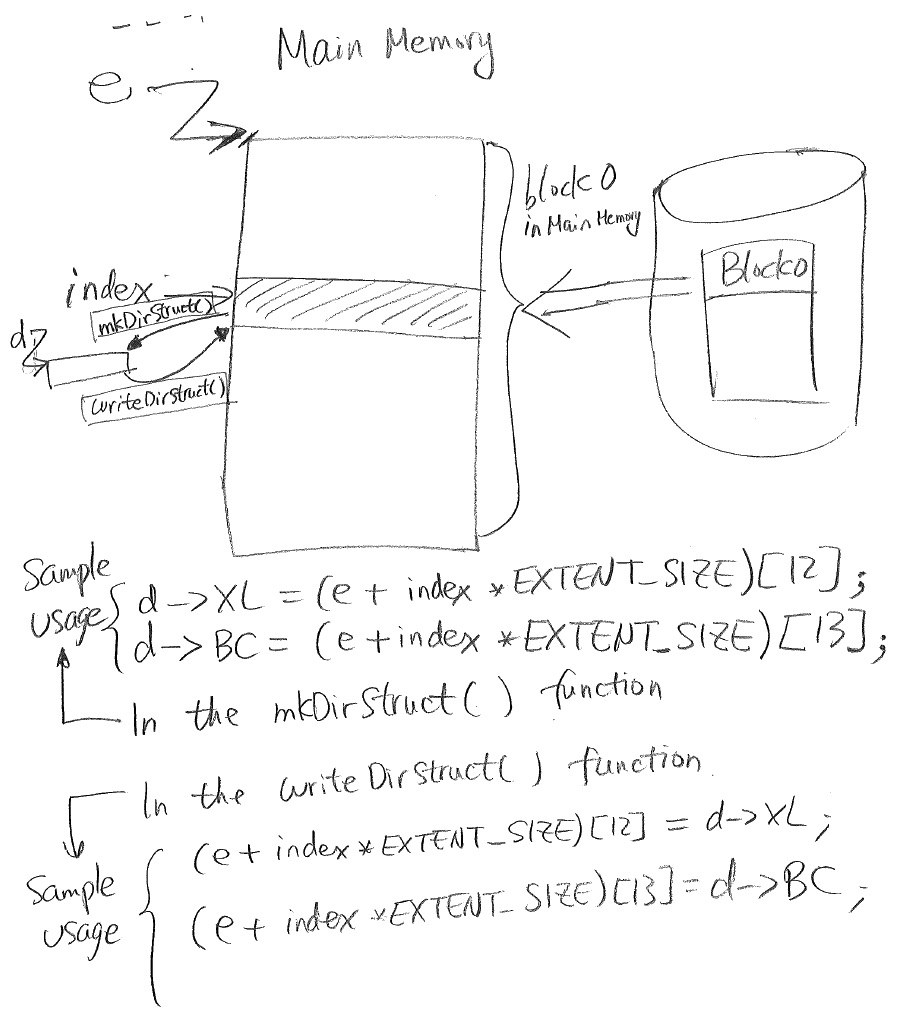 Main Memory
e
block 0
in Main Memory
Block0
index
mkDirStruct()
d
writeDirStruct()
Sample
usage
d->XL = (e + index * EXTENT_SIZE)[12];
d->BC = (e + index * EXTENT_SIZE)[13];
In the mkDirStruct() function
In the writeDirStruct() function
Sample
usage
(e + index * EXTENT_SIZE)[12] = d->XL;
(e + index * EXTENT_SIZE)[13] = d->BC;